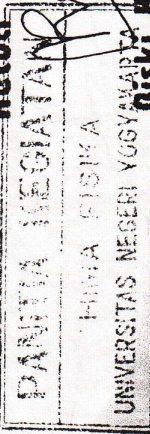 PANITIA KEGIATAN
HIMA FISIKA
UNIVERSITAS NEGERI YOGYAKARTA